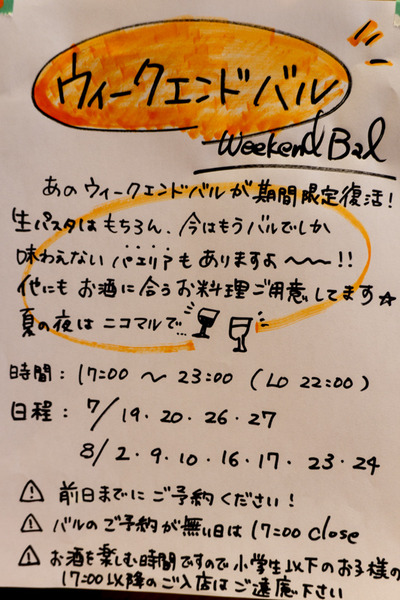 ウィークエンドバル
Weekend Bal
あのウィークエンドバルが期間限定復活!
生パスタはもちろん、今はもうバルでしか
味わえないパエリアもありますよ〜〜!!
他にもお酒に合うお料理ご用意してます☆
夏の夜はニコマルで…
時間:17:00 〜 23:00 (LO 22:00)
日程:7/19・20・26・27
8/2・9・10・16・17・23・24
⚠ 前日までにご予約ください!
⚠ バルのご予約が無い日は17:00 close
⚠ お酒を楽しむ時間ですので小学生以下のお子様の
17:00以降のご入店はご遠慮下さい